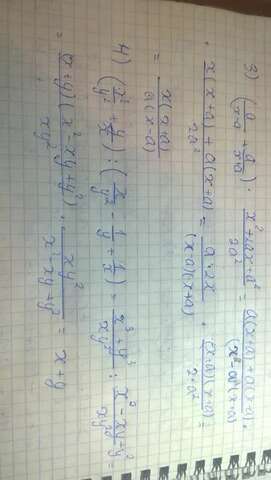 3) (a/(x-a) + a/(x+a)) · (x²+2ax+a²)/2a² = (a(x+a)+a(x-a))/((x²-a²)(x-a)) ·
· (x(x+a)+a(x+a))/2a² = (a·2x)/((x-a)(x+a)) · ((x+a)(x+a))/(2·a²) =
= x(x+a)/a(x-a)
4) (x²/y² + y/x) : (x/y² - 1/y + 1/x) = (x³+y³)/xy² : (x²-xy+y²)/xy² =
= (x+y)(x²-xy+y²)/xy² · xy²/(x²-xy+y²) = x+y